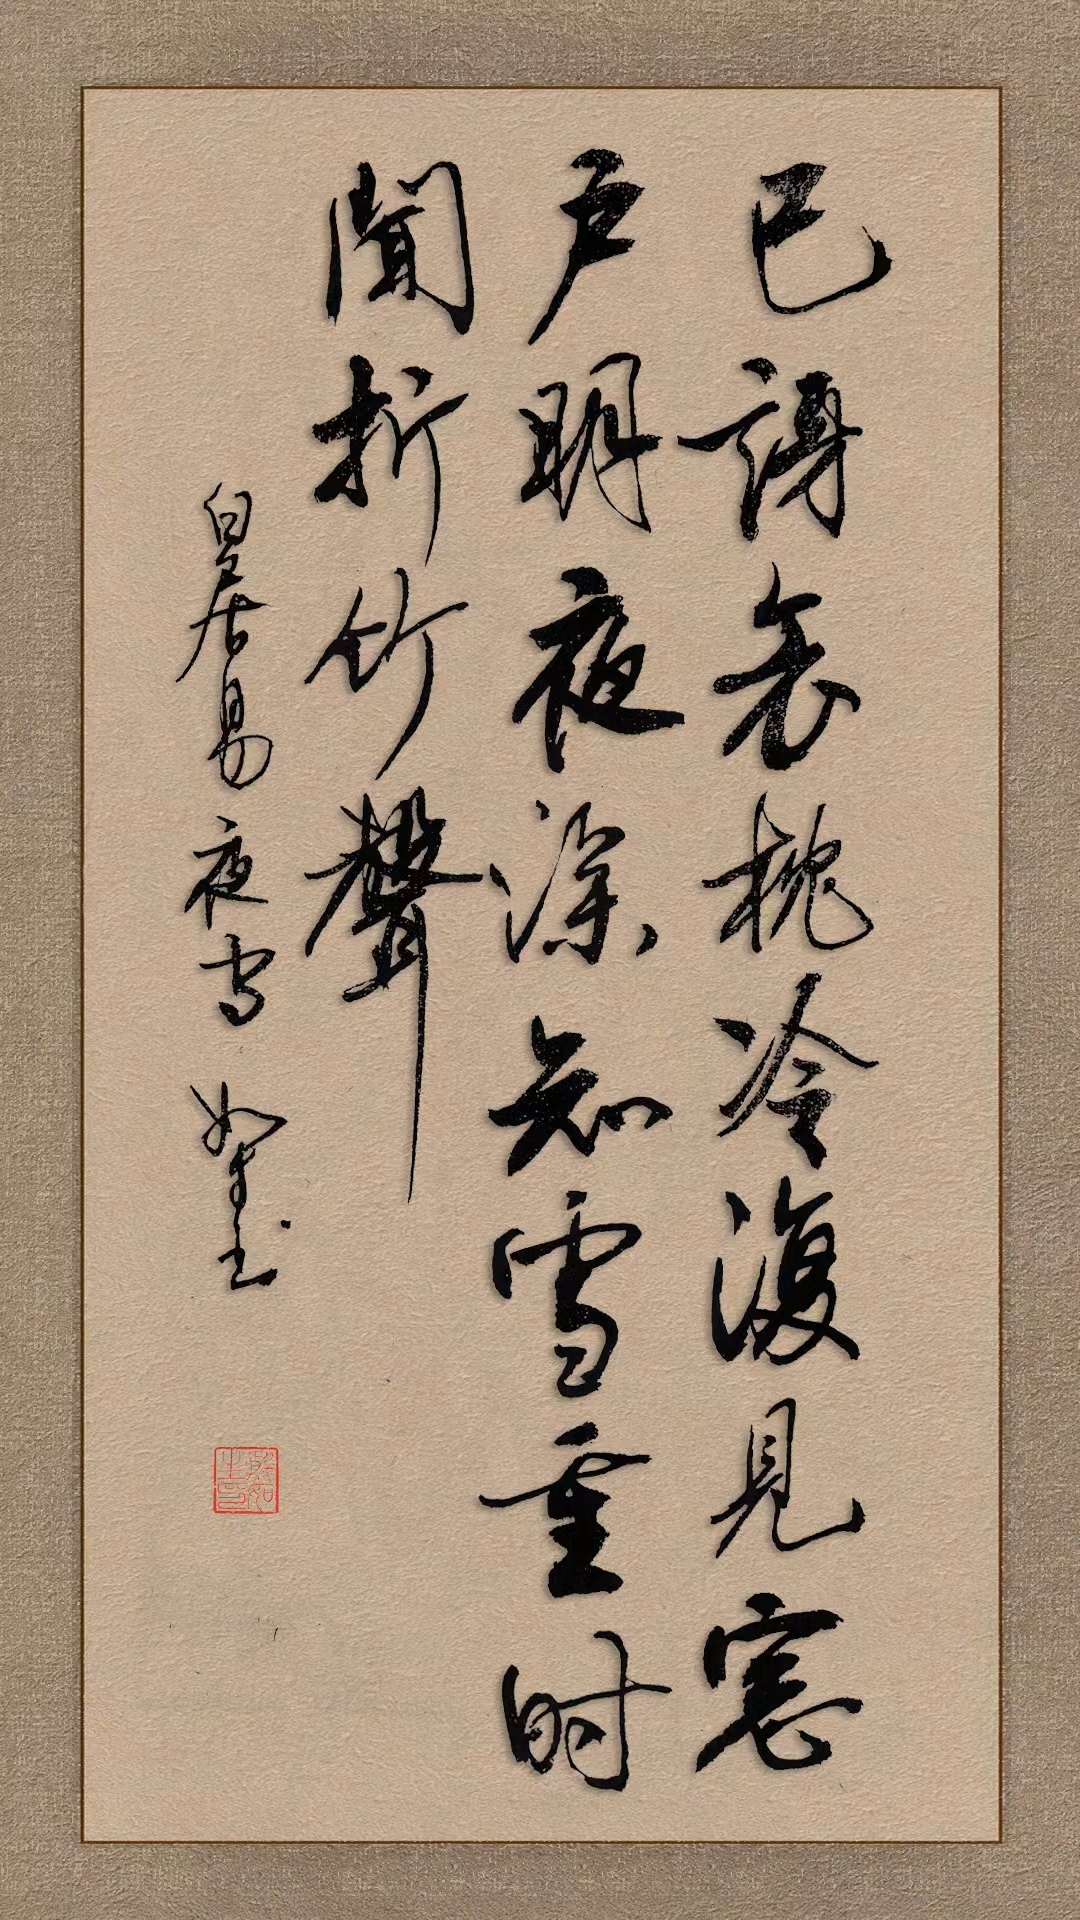 已訝衾枕冷復見窓
户明夜深知雪重时
聞折竹聲
白居易夜雪 如